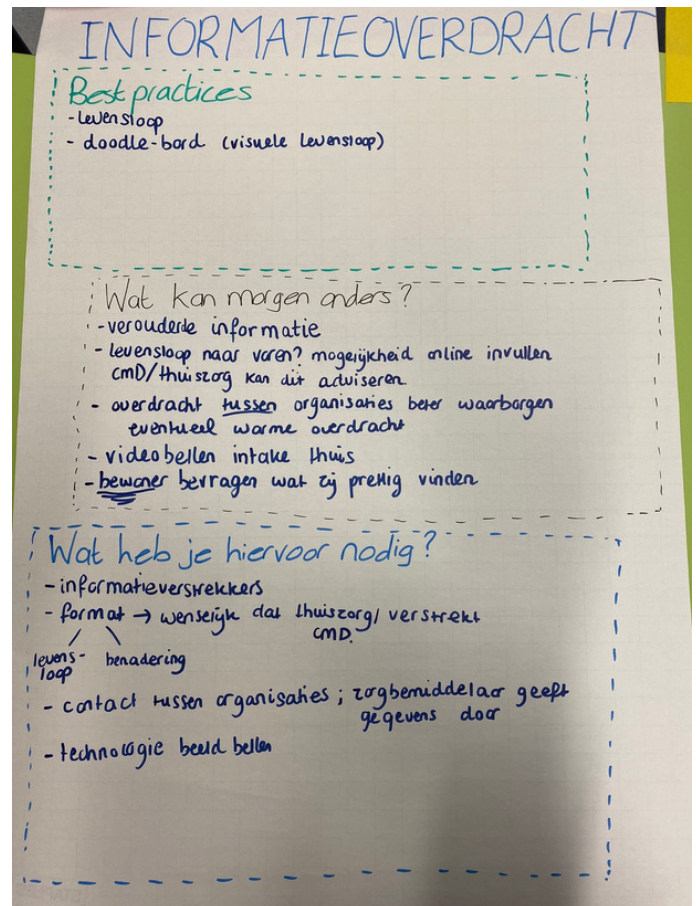 INFORMATIEOVERDRACHT
Best practices
- levensloop
- doodle-bord (visuele levensloop)
Wat kan morgen anders?
- verouderde informatie
- levensloop naar voren? mogelijkheid online invullen
CMD/thuiszorg kan dit adviseren
- overdracht tussen organisaties beter waarborgen
eventueel warme overdracht
- videobellen intake thuis
- bewoner bevragen wat zij prettig vinden
Wat heb je hiervoor nodig?
- informatieverstrekkers
- format → wenselijk dat thuiszorg/ verstrekt
CMD.
levens- benadering
loop
- contact tussen organisaties ; zorgbemiddelaar geeft
gegevens door
- technologie beeld bellen